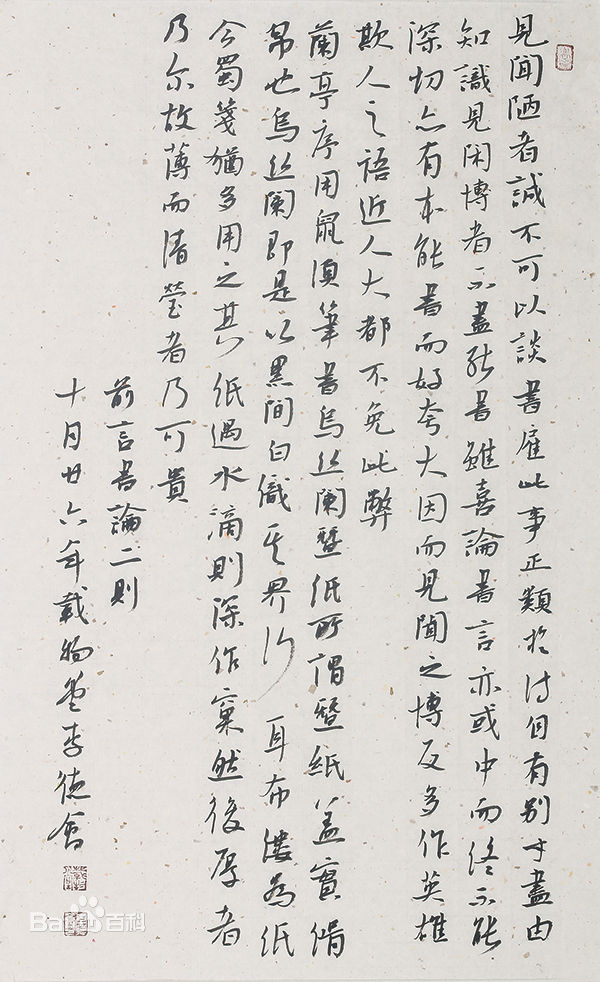 見聞陋者誠不可以談書雇此事正類於诗自有别才盡由
知識見闻博者不盡能書雖喜論書言亦或中而終不能
深切亦有本能書而好夸大因而見聞之博反多作英雄
欺人之語近人大都不免此弊
蘭亭序用鼠須筆書烏丝闌蠒紙所謂蠒紙盖實绢
帛也烏丝闌即是以黑間白織其界行耳布縷為紙
今蜀箋猶多用之其紙遇水滴則深作窠然後厚者
乃尔故薄而清瑩者乃可貴
前言書論二則
十月廿六年載物堂李德
Baidu百科